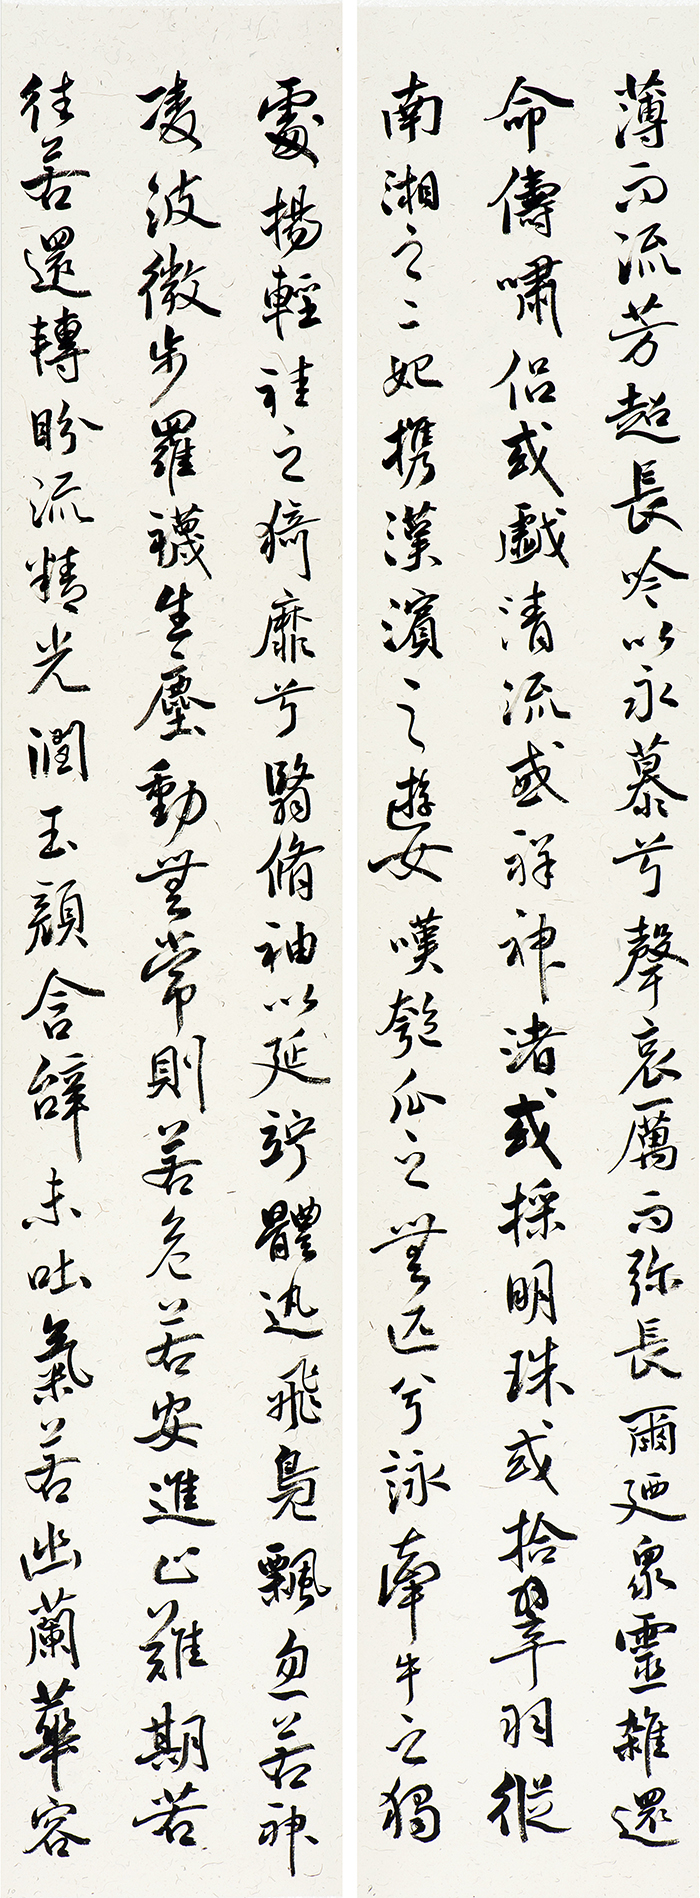 薄而流芳超長吟以永慕兮聲哀厲而弥長爾廼衆靈雜還
命儔嘯侶或戲清流或祥神渚或採明珠或拾翠羽從
南湘之二妃携漢濱之遊女嘆匏瓜之無匹兮詠牽牛之獨
處揚輕袿之猗靡兮翳脩袖以延佇體迅飛鳧飄忽若神
凌波微步羅襪生塵動無常則若危若安進止難期若
往若還轉盼流精光潤玉顏含辭未吐氣若幽蘭華容